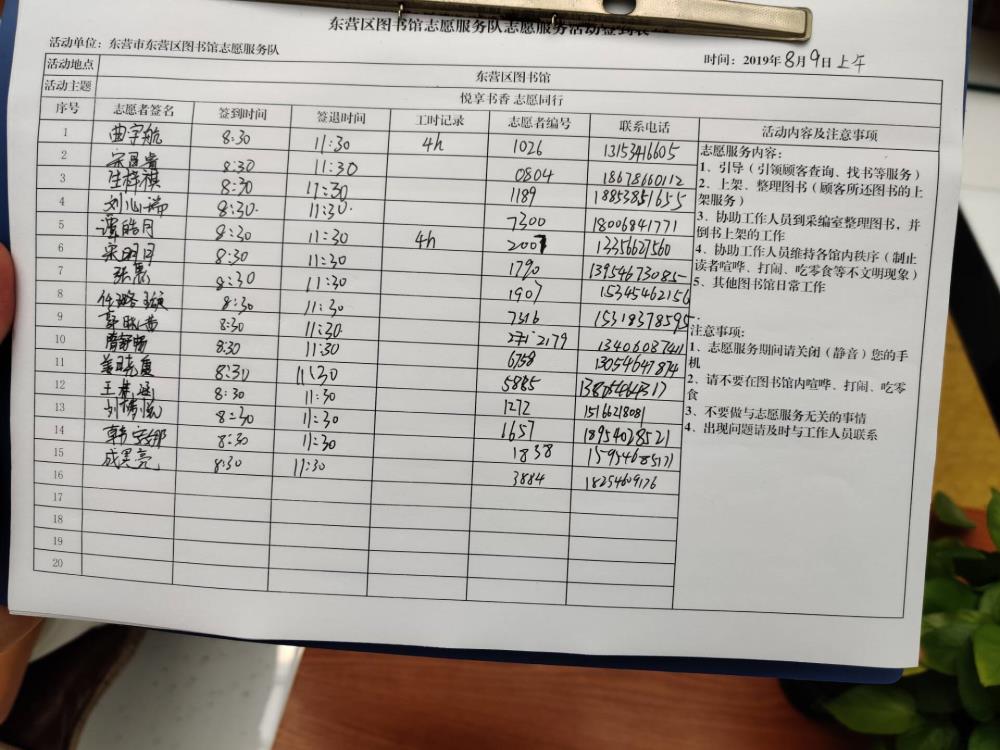 东营区图书馆志愿服务队志愿服务活动签到表
活动单位：东营市东营区图书馆志愿服务队 时间：2019年8月9日上午
活动地点 东营区图书馆
活动主题 悦享书香 志愿同行
序号 志愿者签名 签到时间 签退时间 工时记录 志愿者编号 联系电话 活动内容及注意事项
1 曲宇航 8:30 11:30 4h 1026 13153416605
2 8:30 11:30 0804 18678660112
3 8:30 11:30 1189 18853851655
4 8:30 11:30 7300 18006841771
5 谭皓月 8:30 11:30 4h 2007 13356627560
6 宋明月 8:30 11:30 1790 13954673085
7 8:30 11:30 1907 1534546215
8 8:30 11:30 7316 15318378595
9 8:30 11:30 2179 13406087411
10 8:30 11:30 6758 13054647874
11 姜晓夏 8:30 11:30 5885
12 王梦涵 8:30 11:30 1272 15166218081
13 8:30 11:30 1657 18954028521
14 8:30 11:30 1838 15954685171
15 成昊亮 8:30 11:30 3884 18254609176
16
17
18
19
20
志愿服务内容：
1、引导（引领顾客查询、找书等服务）
2、上架、整理图书（顾客所还图书的上
架服务）
3、协助工作人员到采编室整理图书，并
倒书上架的工作
4、协助工作人员维持各馆内秩序（制止
读者喧哗、打闹、吃零食等不文明现象）
5、其他图书馆日常工作
注意事项：
1、志愿服务期间请关闭（静音）您的手
机
2、请不要在图书馆内喧哗、打闹、吃零
食
3、不要做与志愿服务无关的事情
4、出现问题请及时与工作人员联系